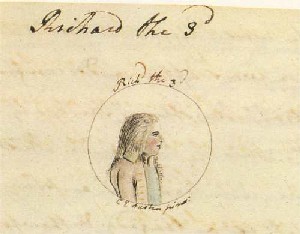 Richard the 3d
Richd the 3d
C E Austen pinx